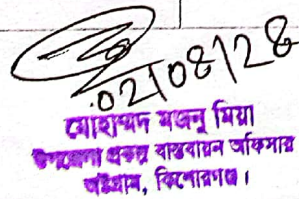 ০২/০৪/২৪
মোহাম্মদ মজনু মিয়া
উপজেলা প্রকল্প বাস্তবায়ন অফিসার
অষ্টগ্রাম, কিশোরগঞ্জ।